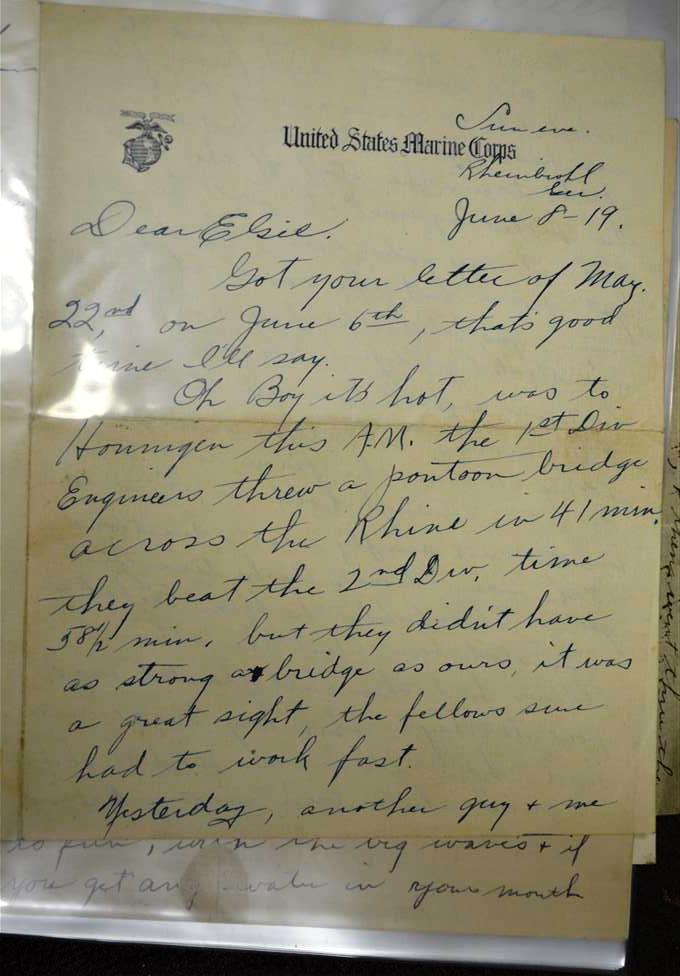 Sun eve.
United States Marine Corps
Rheinbrohl
Ger.
June 8-19.
Dear Elsie.
Got your letter of May.
22,nd on June 6th, that's good
time I'll say.
Oh Boy it's hot, was to
Honnigen this A.M. the 1st Div
Engineers threw a pontoon bridge
across the Rhine in 41 min.
they beat the 2nd Div. time
58 1/2 min. but they didn't have
as strong a bridge as ours, it was
a great sight, the fellows sure
had to work fast.
Yesterday, another guy + me
is fun, with the big waves + if
you get any water in your mouth